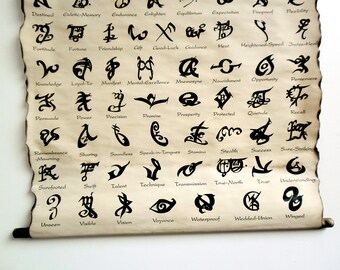 Destined Eidetic-Memory Endurance Enlighten Equilibrium Expectation Foresight Fireproof Flexibility
Fortitude Fortune Friendship Gift Good-Luck Guidance Heat Heightened-Speed
Knowledge Manifest Mental-Excellence Mnemosyne Nourishment Opportunity Permanent Persevere
Remade Power Precision Promise Prosperity Protected Quietude Recall
Remembrance Sharing Soundless Speak-in-Tongues Stamina Stealth Success
-Mourning
Surefooted Swift Talent Technique Transmission True-North Trust Understanding
Unseen Visible Vision Voyance Waterproof Wedded-Union Winged